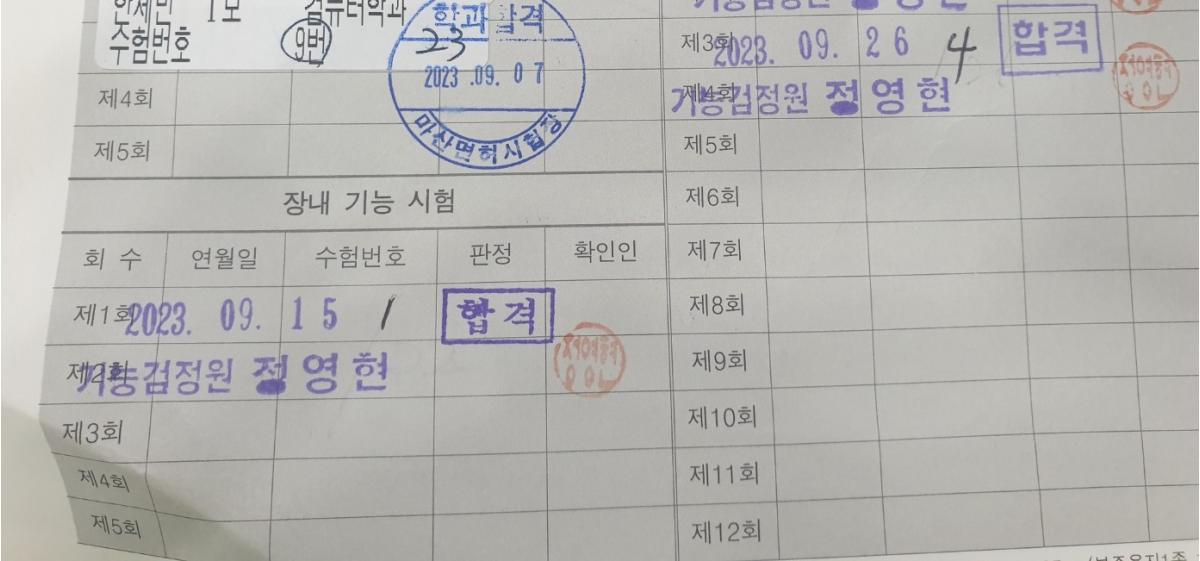 1모 컴퓨터학과
수험번호 9번
학과합격
23
2023 .09. 07
마산면허시험장
제4회
제5회
장내 기능 시험
회 수 연월일 수험번호 판정 확인인
제1회 2023. 09. 15 1 합격
제2회 기능검정원 정영현
제3회
제4회
제5회
제3회 2023. 09. 26 4 합격
제4회 기능검정원 정영현
제5회
제6회
제7회
제8회
제9회
제10회
제11회
제12회